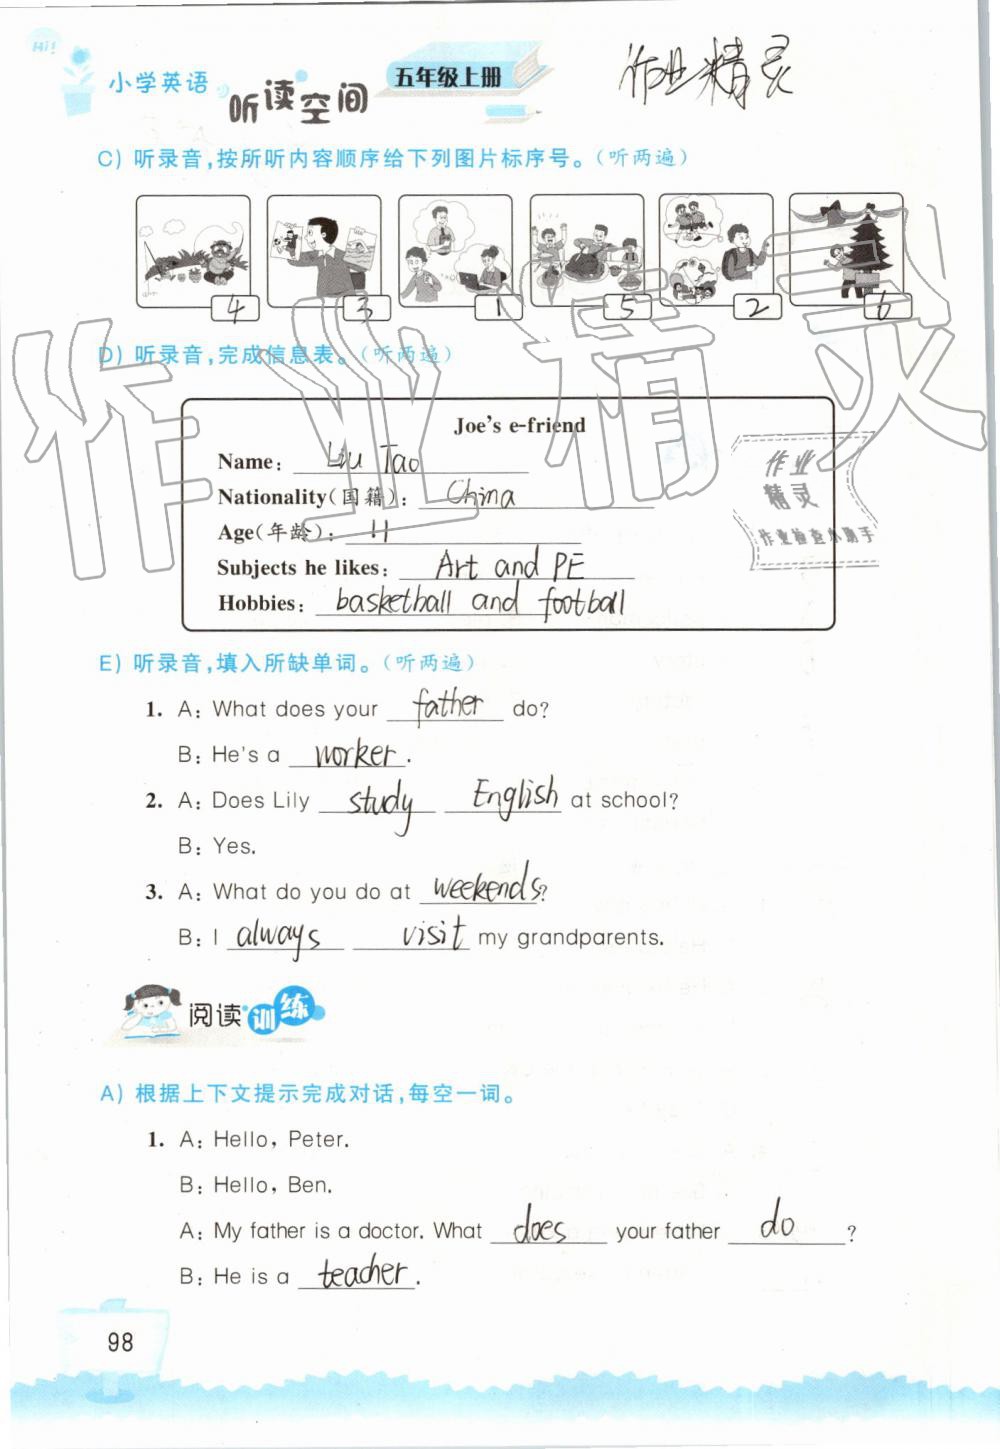 Hi!
小学英语 听读空间 五年级上册 作业精灵
C) 听录音,按所听内容顺序给下列图片标序号。(听两遍)
4 3 1 5 2 6
D) 听录音,完成信息表。(听两遍)
作业精灵
Joe's e-friend
Name: Liu Tao
Nationality(国籍): China
Age(年龄): 11
Subjects he likes: Art and PE
Hobbies: basketball and football
作业
精灵
作业检查小助手
E) 听录音,填入所缺单词。(听两遍)
1. A: What does your father do?
B: He's a worker.
2. A: Does Lily study English at school?
B: Yes.
3. A: What do you do at weekends?
B: I always visit my grandparents.
阅读训练
A) 根据上下文提示完成对话,每空一词。
1. A: Hello, Peter.
B: Hello, Ben.
A: My father is a doctor. What does your father do ?
B: He is a teacher.
98